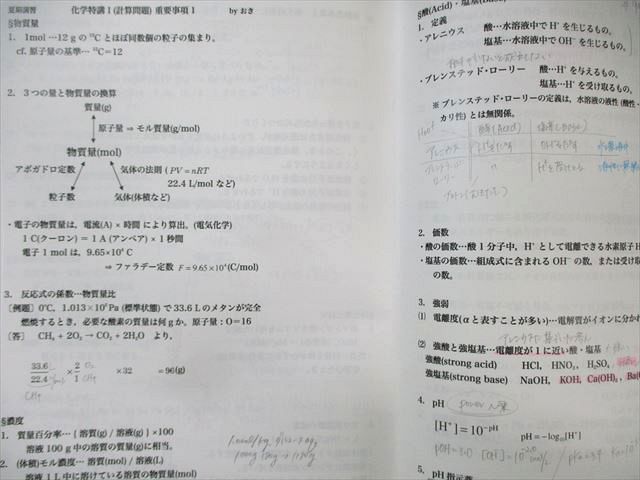 夏期演習 化学特講Ⅰ(計算問題) 重要事項1 by おき
§物質量
1. 1mol …12 g の ¹²C とほぼ同数個の粒子の集まり。
cf. 原子量の基準… ¹²C=12
2. 3つの量と物質量の換算
質量(g)
原子量 ⇒ モル質量(g/mol)
物質量(mol)
アボガドロ定数 気体の法則 (PV=nRT
22.4 L/mol など)
粒子数 気体(体積など)
・電子の物質量は, 電流(A)×時間 により算出。(電気化学)
1 C(クーロン) = 1 A (アンペア) × 1 秒間
電子 1 mol は, 9.65×10⁴ C
⇒ ファラデー定数 F=9.65×10⁴(C/mol)
3. 反応式の係数…物質量比
〔例題〕0℃, 1.013×10⁵ Pa (標準状態) で 33.6 L のメタンが完全
燃焼するとき, 必要な酸素の質量は何 g か。原子量:O=16
〔答〕 CH₄ + 2O₂ → CO₂ + 2H₂O より,
33.6/22.4 × 2/1 ×32 =96(g)
§濃度
1. 質量百分率… { 溶質(g) / 溶液(g) } ×100
溶液 100 g 中の溶質の質量(g)に相当。
2. (体積)モル濃度… 溶質(mol) / 溶液(L)
溶液 1 L 中に溶けている溶質の物質量(mol)
§酸(Acid)・塩基(Bas
1. 定義
・アレニウス 酸…水溶液中で H⁺ を生じるもの。
塩基…水溶液中で OH⁻ を生じるもの。
・ブレンステッド・ローリー 酸…H⁺ を与えるもの。
塩基…H⁺ を受け取るもの。
※ ブレンステッド・ローリーの定義は, 水溶液の液性 (酸性・
カリ性) とは無関係。
2. 価数
・酸の価数…酸 1 分子中, H⁺ として電離できる水素原子 H
・塩基の価数…組成式に含まれる OH⁻ の数, または受け取
の数。
3. 強弱
(1) 電離度(α と表すことが多い)…電解質がイオンに分かれ
(2) 強酸と強塩基…電離度が 1 に近い酸・塩基
強酸(strong acid) HCl, HNO₃, H₂SO₄
強塩基(strong base) NaOH, KOH, Ca(OH)₂, Ba(
4. pH power
[H⁺]=10⁻ᵖᴴ pH=−log₁₀[H⁺]
5. pH 指示薬